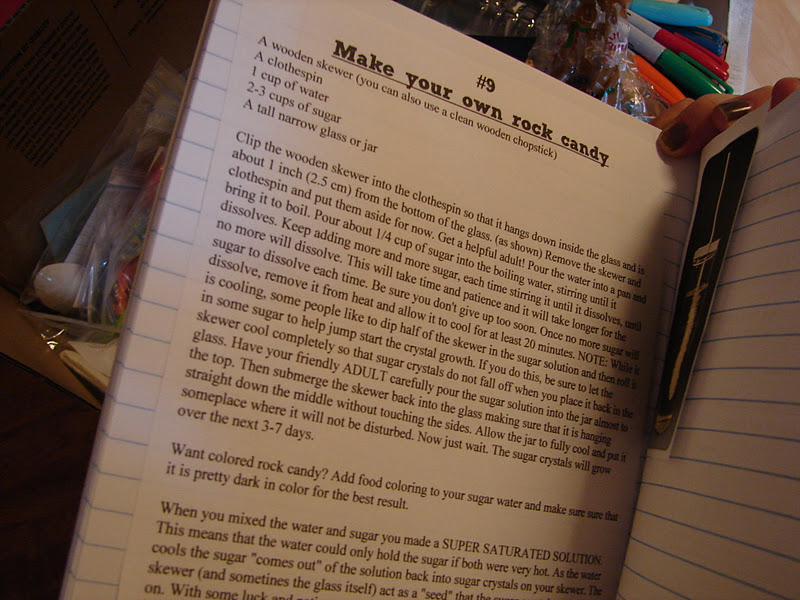 #9
Make your own rock candy
A wooden skewer (you can also use a clean wooden chopstick)
A clothespin
1 cup of water
2-3 cups of sugar
A tall narrow glass or jar
Clip the wooden skewer into the clothespin so that it hangs down inside the glass and is
about 1 inch (2.5 cm) from the bottom of the glass. (as shown) Remove the skewer and
clothespin and put them aside for now. Get a helpful adult! Pour the water into a pan and
bring it to boil. Pour about 1/4 cup of sugar into the boiling water, stirring until it
dissolves. Keep adding more and more sugar, each time stirring it until it dissolves, until
no more will dissolve. This will take time and patience and it will take longer for the
sugar to dissolve each time. Be sure you don't give up too soon. Once no more sugar will
dissolve, remove it from heat and allow it to cool for at least 20 minutes. NOTE: While it
is cooling, some people like to dip half of the skewer in the sugar solution and then roll it
in some sugar to help jump start the crystal growth. If you do this, be sure to let the
skewer cool completely so that sugar crystals do not fall off when you place it back in the
glass. Have your friendly ADULT carefully pour the sugar solution into the jar almost to
the top. Then submerge the skewer back into the glass making sure that it is hanging
straight down the middle without touching the sides. Allow the jar to fully cool and put it
someplace where it will not be disturbed. Now just wait. The sugar crystals will grow
over the next 3-7 days.
Want colored rock candy? Add food coloring to your sugar water and make sure sure that
it is pretty dark in color for the best result.
When you mixed the water and sugar you made a SUPER SATURATED SOLUTION.
This means that the water could only hold the sugar if both were very hot. As the water
cools the sugar "comes out" of the solution back into sugar crystals on your skewer. The
skewer (and sometines the glass itself) act as a "seed" that the
on. With some luck and